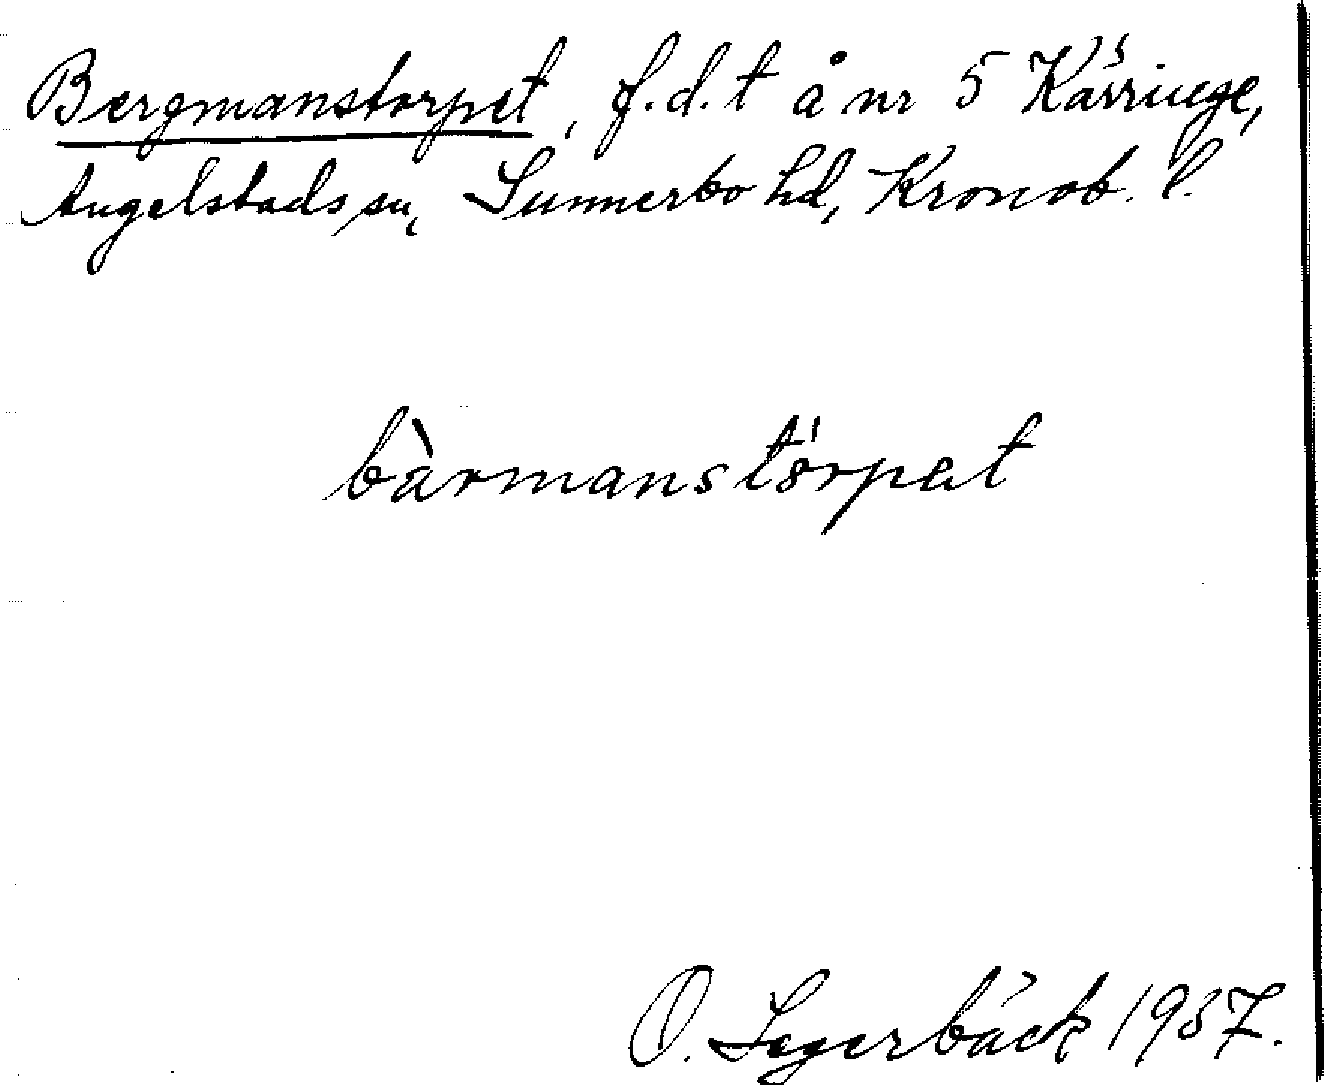 Bergmanstorpet, f.d. t å nr 5 Käringe,
Angelstads sn, Sunnerbo hd, Kronob. l.
bàrmanstórpet
O. Segerbäck 1937.